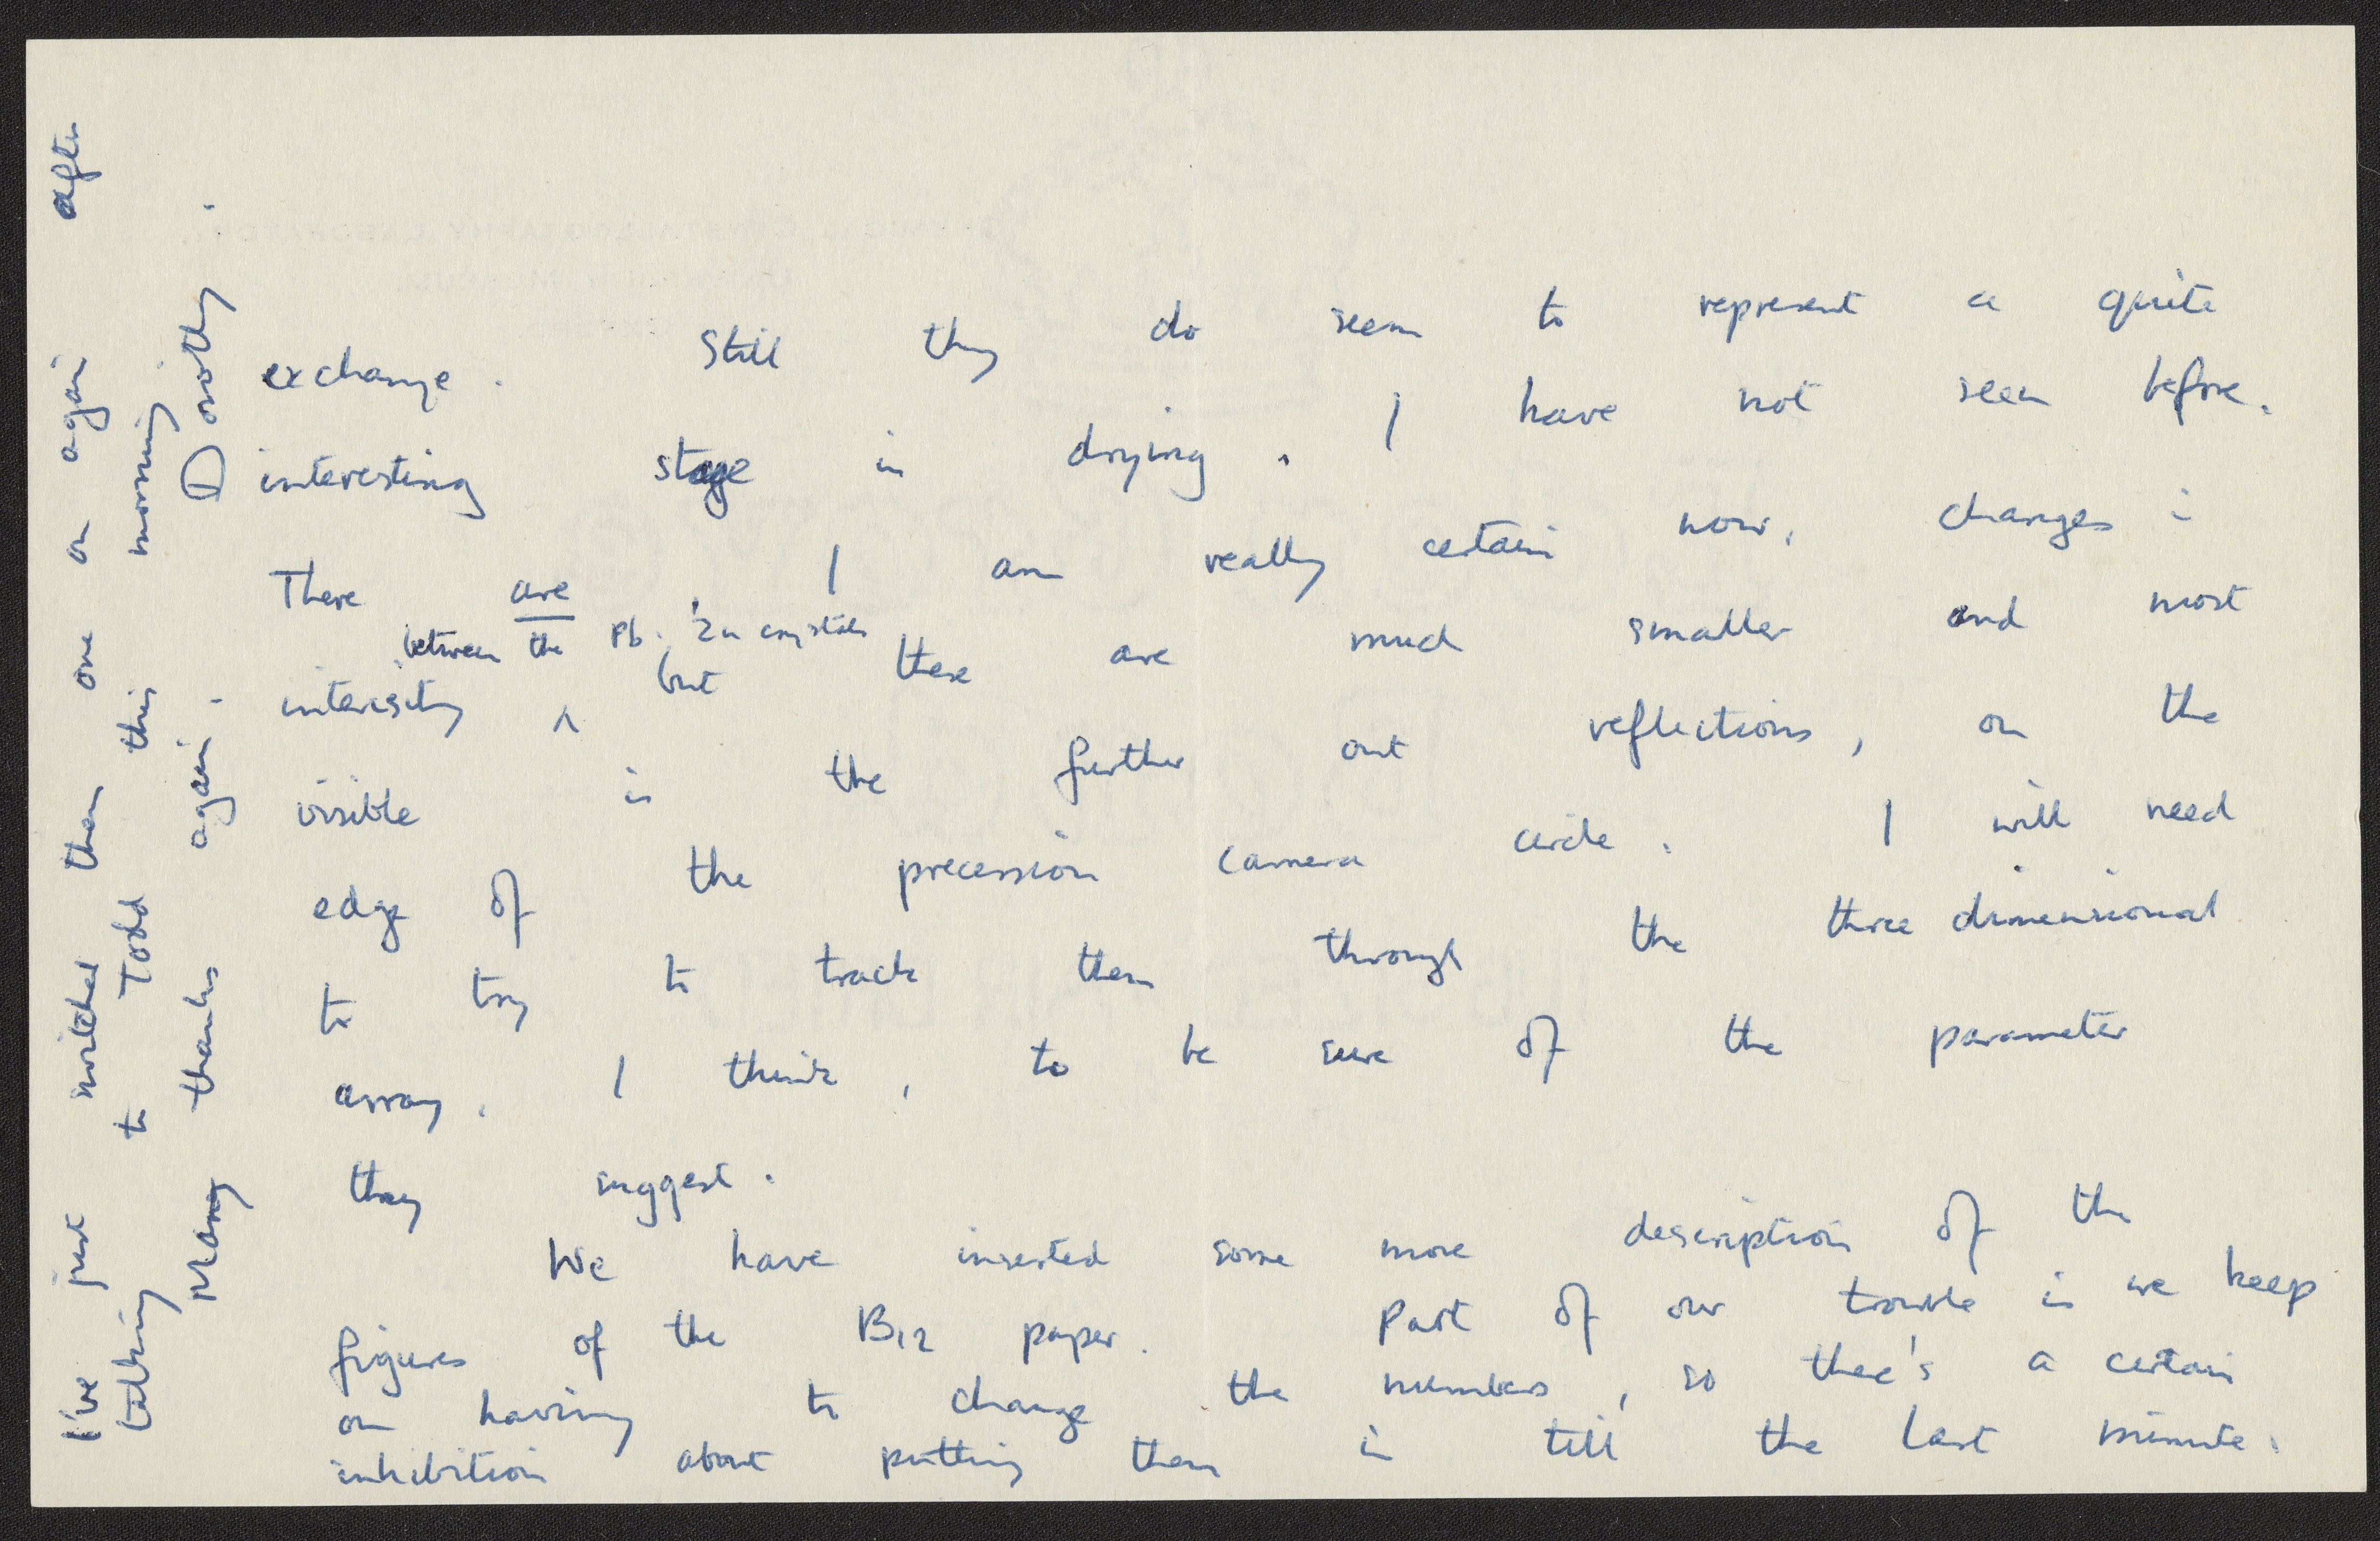 exchange. Still they do seem to represent a quite
interesting stage in drying. I have not seen before.
There are, I am really certain now, changes in
between the Pb, Zn crystals
intensity ^ but these are much smaller and most
visible in the further out reflections, on the
edge of the precession camera circle. I will need
to try to track them through the three dimensional
array. I think, to be sure of the parameter
they suggest.
We have inserted some more description of the
figures of the B12 paper. Part of our trouble is we keep
on having to change the numbers, so there's a certain
inhibition about putting them in till the last minute.
I've just switched them one on again after
talking to Todd this morning
Many thanks again.
Dorothy.